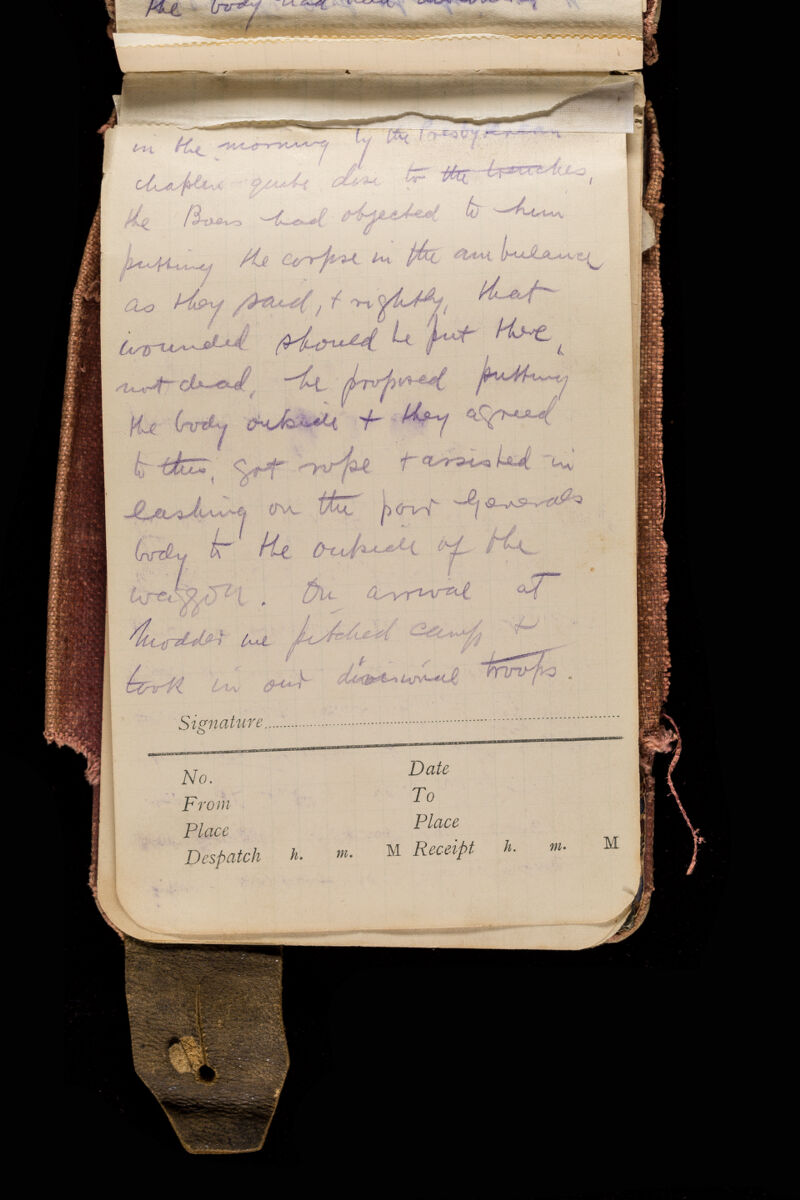 the body had been
in the morning by the Presbyterian
chaplin quite close to the trenches,
the Boers had objected to him
putting the corpse in the ambulance
as they said, + rightly, that
wounded should be put there,
not dead, he proposed putting
the body outside + they agreed
to this, got rope + assisted in
lashing on the poor Generals
body to the outside of the
waggon. On arrival at
Modder we pitched camp +
took in our divisional troops.
Signature
No. Date
From To
Place Place
Despatch h. m. M Receipt h. m. M